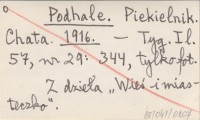 Podhale. Piekielnik.
Chata. 1916. — Tyg. Il.
57, nr 29: 344, tylko fot.
Z dzieła „Wieś i mias-
teczko".